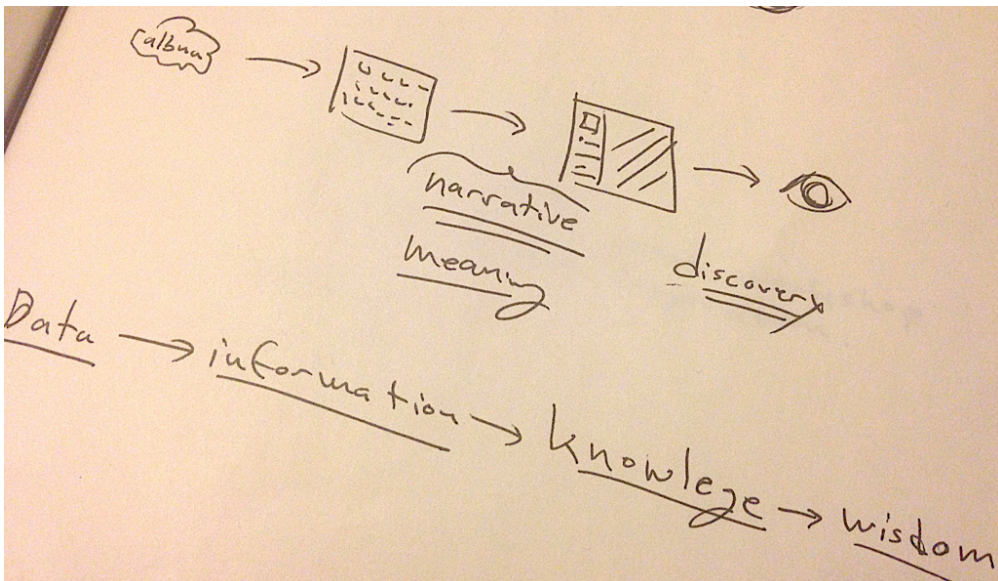 album
narrative
meaning
discovery
Data → information → knowlege → wisdom